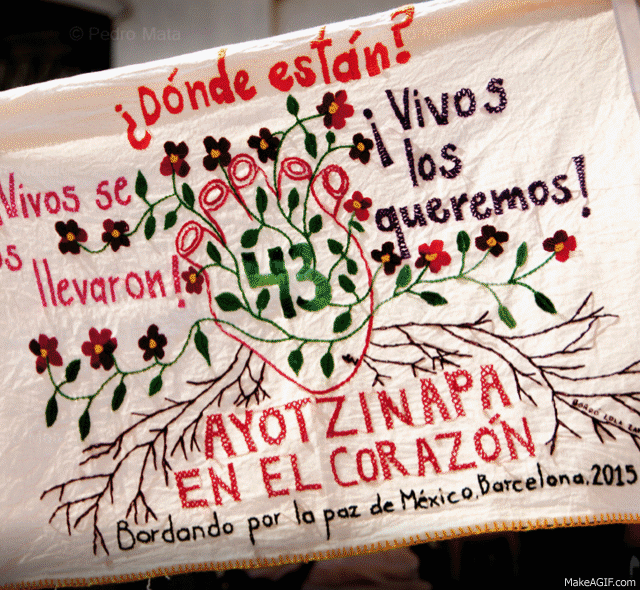 © Pedro Mata
¿Dónde están?
Vivos se
os
llevaron!
¡Vivos
los
queremos!
43
AYOTZINAPA
EN EL CORAZÓN
Bordando por la paz de México, Barcelona, 2015
MakeAGIF.com